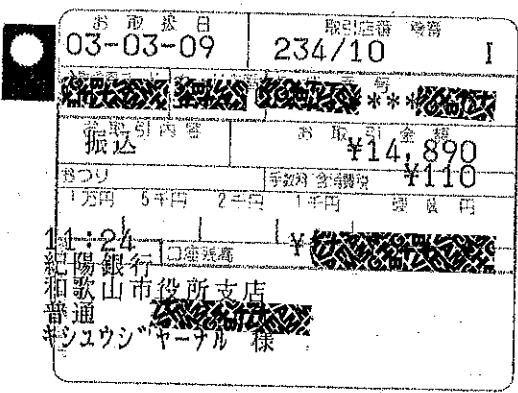 お取扱日 取引店番
03-03-09 234/10 I
***
お取引内容 お取引金額
振込 ¥14,890
おつり 手数料 含消費税 ¥110
1万円 5千円 2千円 1千円 硬貨 円
11:24 口座残高 ¥
紀陽銀行
和歌山市役所支店
普通
キシュウジャーナル 様